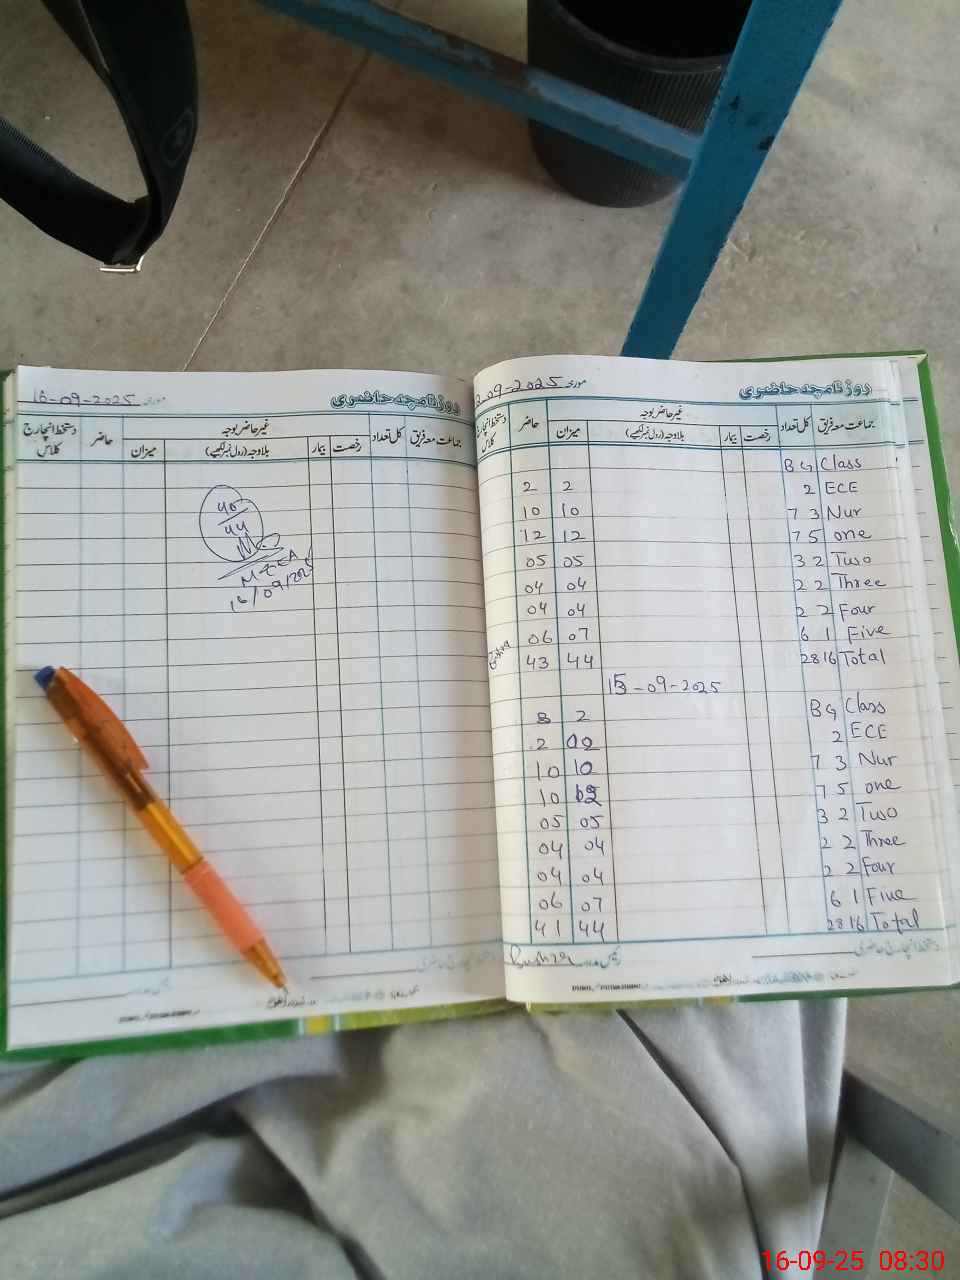 16-09-2025 مورخہ روزنامچہ حاضری
جماعت معہ فریق کل تعداد غیر حاضر بوجہ حاضر دستخط انچارج کلاس
رخصت بیمار بلاوجہ (رول نمبر لکھیے) میزان
40
44
MEEA
16/09/2025
رئیس مدرسہ
2-09-2025 مورخہ روزنامچہ حاضری
جماعت معہ فریق کل تعداد غیر حاضر بوجہ حاضر دستخط انچارج کلاس
رخصت بیمار بلاوجہ (رول نمبر لکھیے) میزان
B G Class
2 2 2 ECE
10 10 7 3 Nur
12 12 7 5 one
05 05 3 2 Two
04 04 2 2 Three
04 04 2 2 Four
06 07 6 1 Five
43 44 28 16 Total
15-09-2025
8 2 B G Class
2 02 2 ECE
10 10 7 3 Nur
10 12 7 5 one
05 05 3 2 Two
04 04 2 2 Three
04 04 2 2 Four
06 07 6 1 Five
41 44 28 16 Total
دستخط انچارج حاضری
Bushra رئیس مدرسہ
16-09-25 08:30